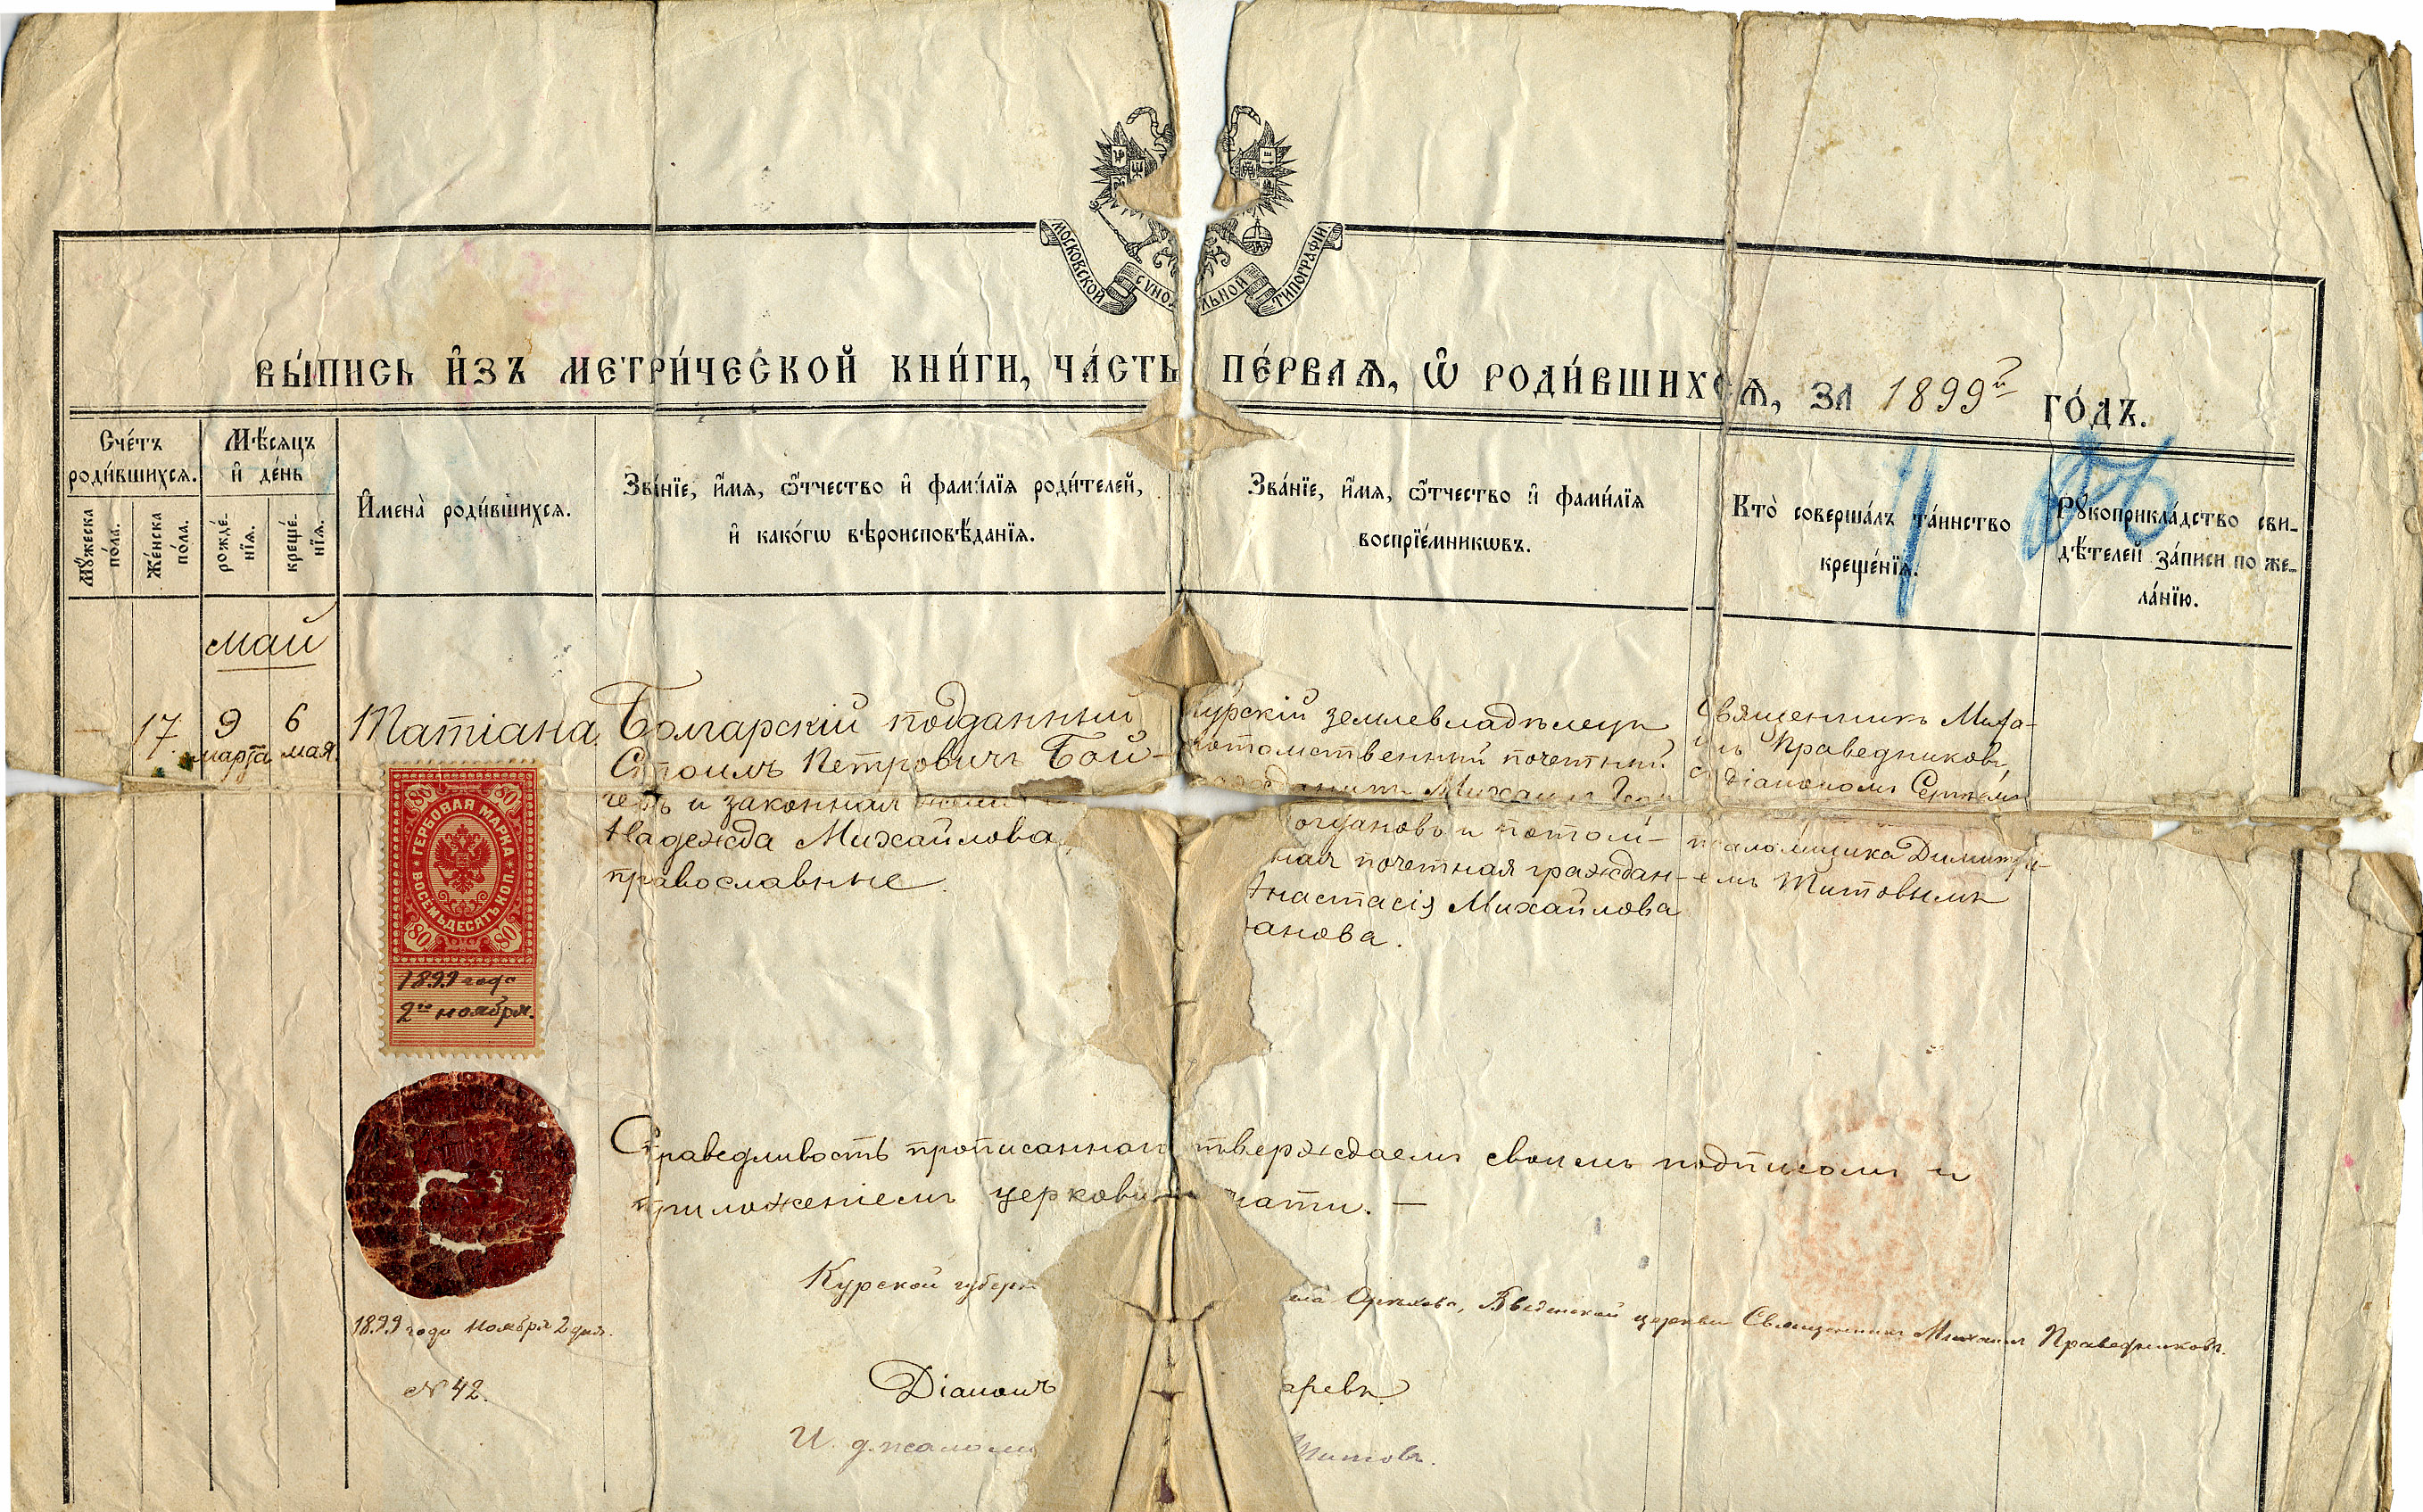 МОСКОВСКОЙ СѴНО ЛЬНОЙ ТИПОГРАФІИ
ВЫ́ПИСЬ И҆ЗЪ МЕТРИ́ЧЕСКОЙ КНИ́ГИ, ЧА́СТЬ ПЕ́РВАѦ, Ѡ҆ РОДИ́ВШИХСѦ, ЗА 1899й ГО́ДЪ.
Сче́тъ
роди́вшихсѧ.
Мѣ́сѧцъ
и҆ де́нь
Мꙋ́жеска
по́ла.
Же́нска
по́ла.
рожде́-
нїѧ.
креще́-
нїѧ.
И҆мена̀ роди́вшихсѧ.
Зва́нїе, и҆́мѧ, ѻ҆́тчество и҆ фами́лїѧ роди́телей,
и҆ како́гѡ вѣроисповѣ́данїѧ.
Зва́нїе, и҆́мѧ, ѻ҆́тчество и҆ фами́лїѧ
воспрїе́мникѡвъ.
Кто̀ соверша́лъ та́инство
креще́нїѧ.
Рꙋкоприкла́дство сви-
дѣ́телей за́писи по же-
ла́нїю.
май
17. 9 марта 6 мая.
Татіана.
Болгарскій подданный
Стоилъ Петровичъ Бой-
чевъ и законная жена
Надежда Михайлова,
православные.
Курскій землевладѣлецъ
потомственный почетный
гражданинъ Михаилъ
огдановъ и потом-
ная почетная граждан-
Анастасія Михайлова
анова.
Священникъ Миха-
илъ Праведниковъ,
съ діакономъ Сергѣемъ
псаломщика Димитрі-
емъ Титовымъ
ГЕРБОВАЯ МАРКА
ВОСЕМЬДЕСЯТЪ КОП.
80 80
80 80
1899 года
2го ноября.
Справедливость прописаннаго тверждаемъ своимъ подписомъ и
приложеніемъ церковн чати. —
Курской губерн ела Орѣхова, Введенской церкви Священникъ Михаилъ Праведниковъ.
1899 года Ноября 2 дня.
№ 42.
Діаконъ аревъ
И. д. псалом Титовъ.